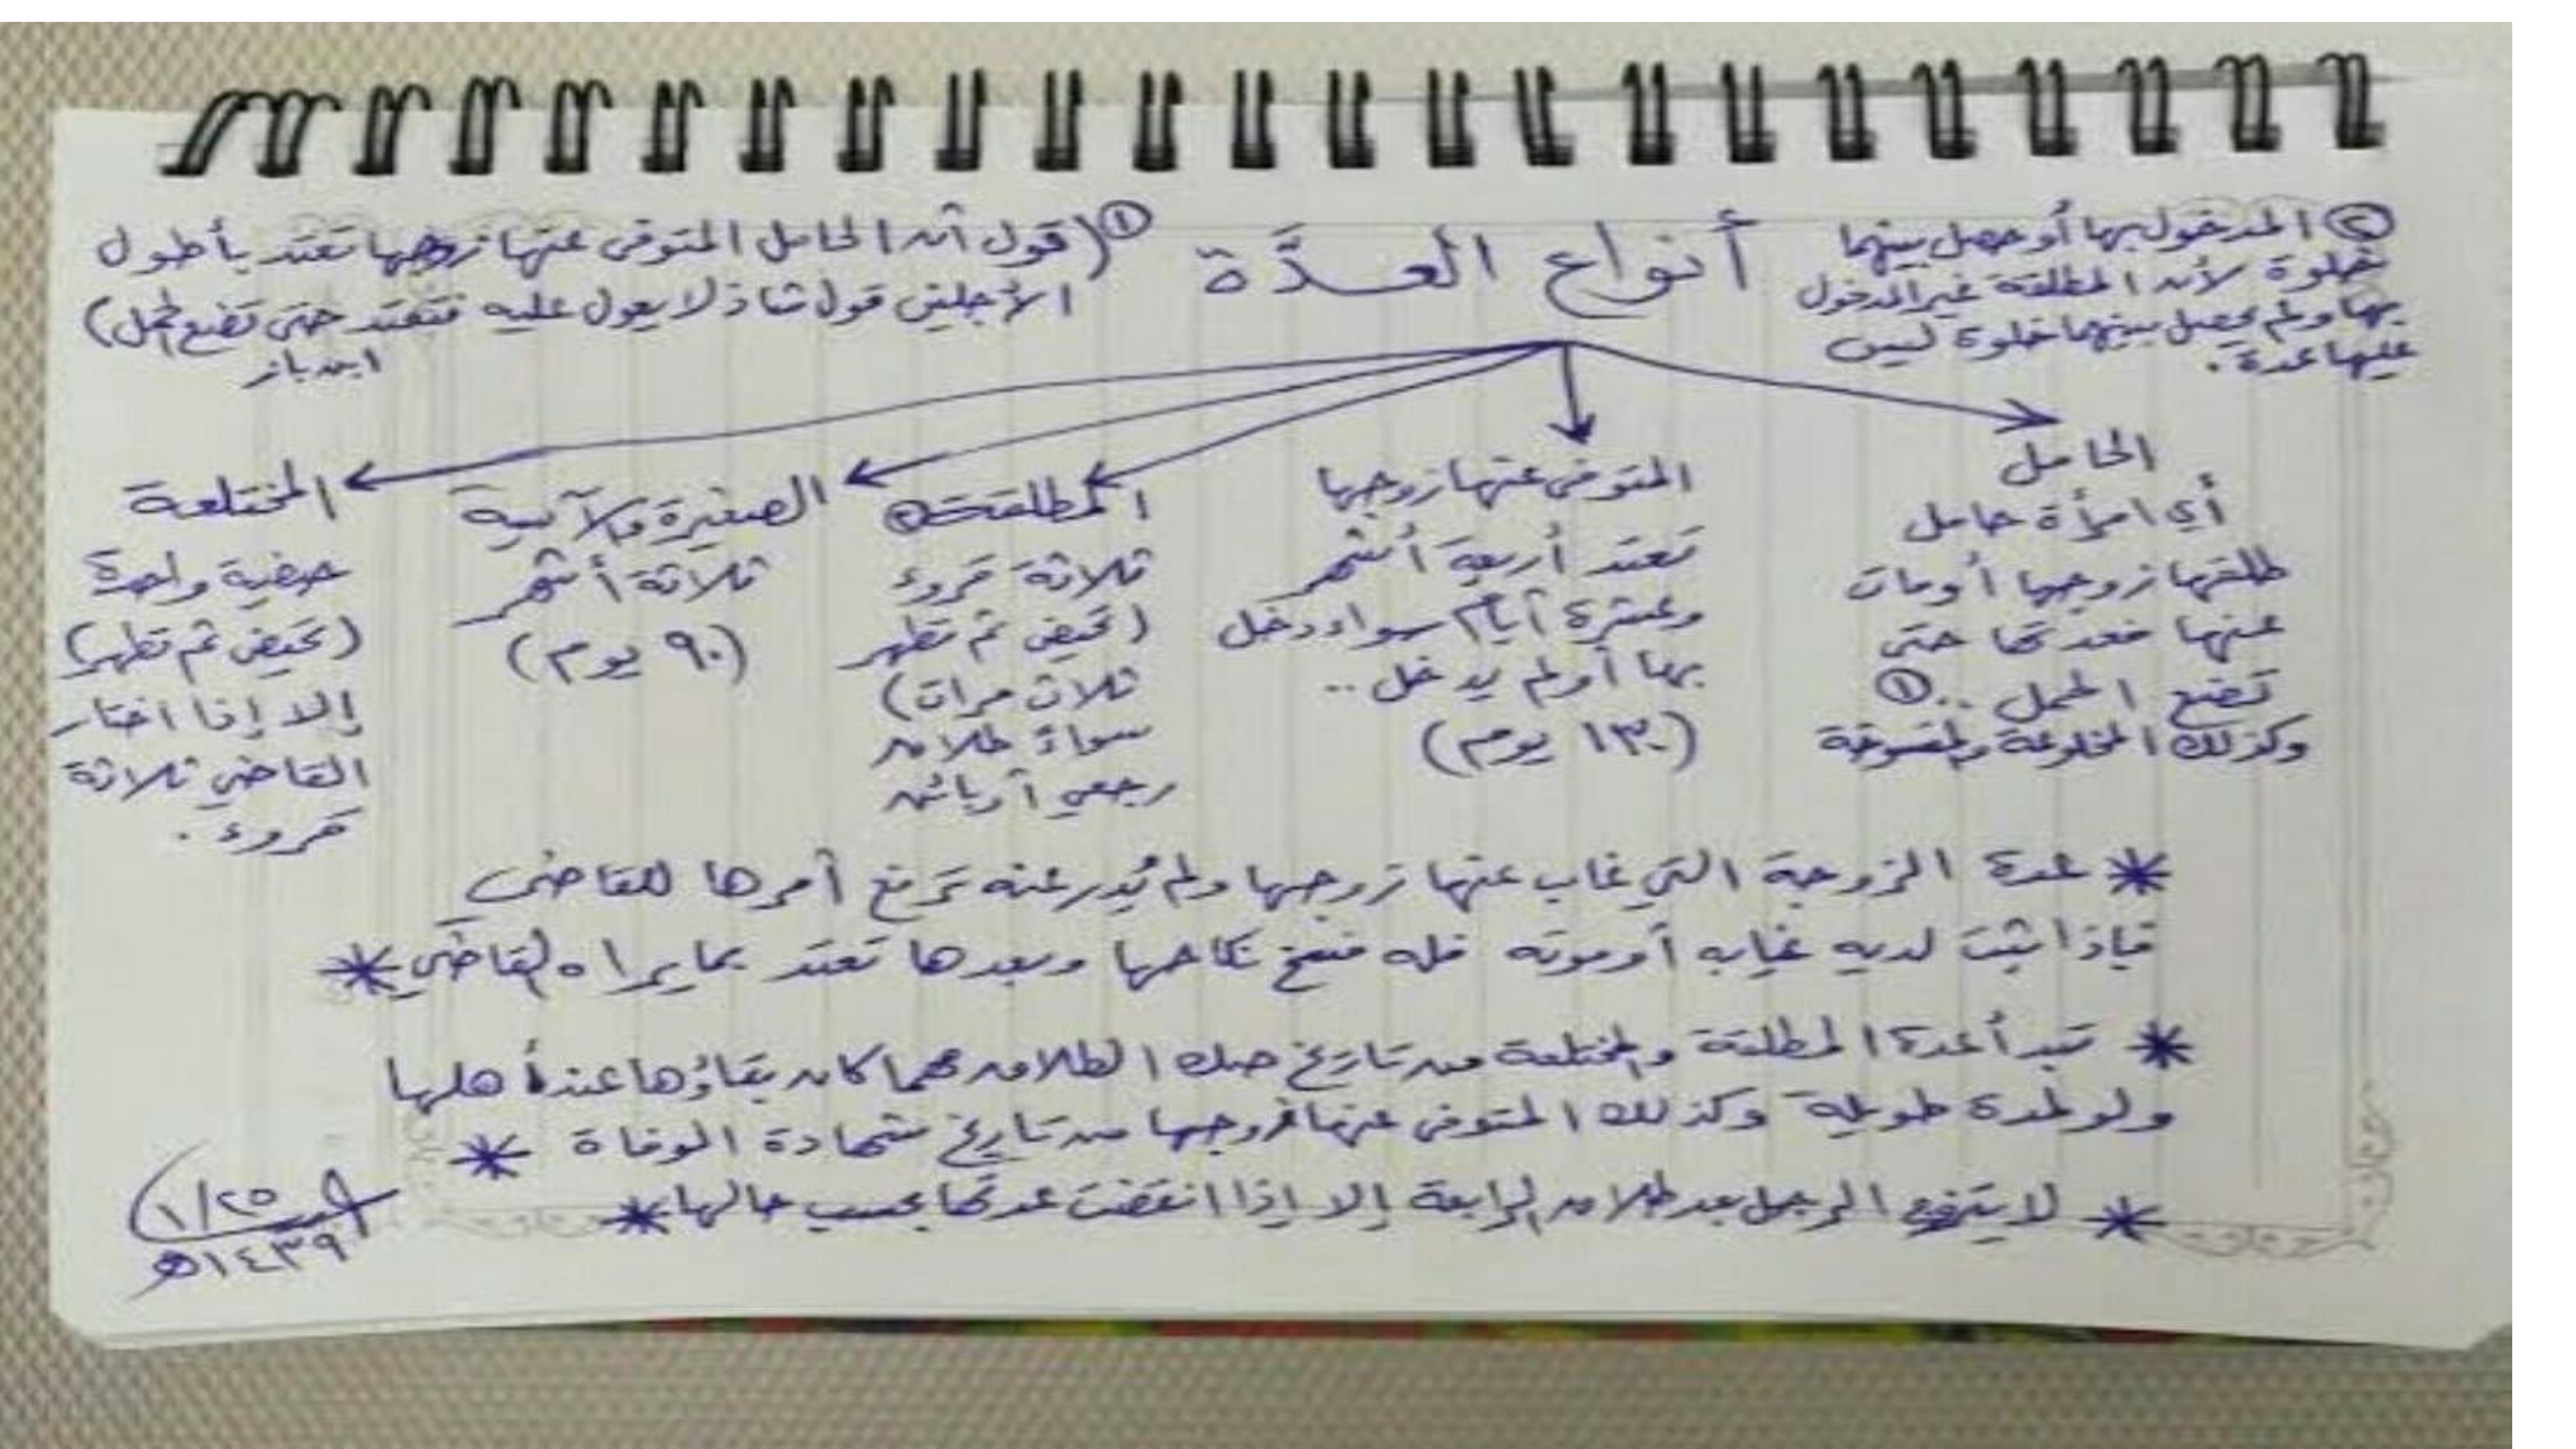 أنواع العـــدَّة
② المدخول بها أو حصل بينهما
خلوة لأن المطلقة غير المدخول
بها ولم يحصل بينهما خلوة ليس
عليها عدة .
① (قول أن الحامل المتوفى عنها زوجها تعتد بأطول
الأجلين قول شاذ لا يعول عليه فتعتد حتى تضع الحمل)
ابن باز
الحامل
أي امرأة حامل
طلقها زوجها أو مات
عنها فعدتها حتى
تضع الحمل .. ①
وكذلك المخلوعة والمفسوخة
المتوفى عنها زوجها
تعتد أربعة أشهر
وعشرة أيام سواء دخل
بها أو لم يدخل ..
(١٣٠ يوم)
المطلقة ②
ثلاثة قروء
(تحيض ثم تطهر
ثلاث مرات)
سواءً طلاق
رجعي أو بائن
الصغيرة والآيسة
ثلاثة أشهر
(٩٠ يوم)
المختلعة
حيضة واحدة
(تحيض ثم تطهر)
إلا إذا اختار
القاضي ثلاثة
قروء .
* عدة الزوجة التي غاب عنها زوجها ولم يُدر عنه ترفع أمرها للقاضي
فإذا ثبت لديه غيابه أو موته فله فسخ نكاحها وبعدها تعتد بما يراه القاضي *
* تبدأ عدة المطلقة والمختلعة من تاريخ صك الطلاق مهما كان بقاؤها عند أهلها
ولو لمدة طويلة وكذلك المتوفى عنها زوجها من تاريخ شهادة الوفاة *
* لا يتزوج الرجل بعد طلاق الرابعة إلا إذا انقضت عدتها بحسب حالها *
١/٢٥
١٤٣٩هـ